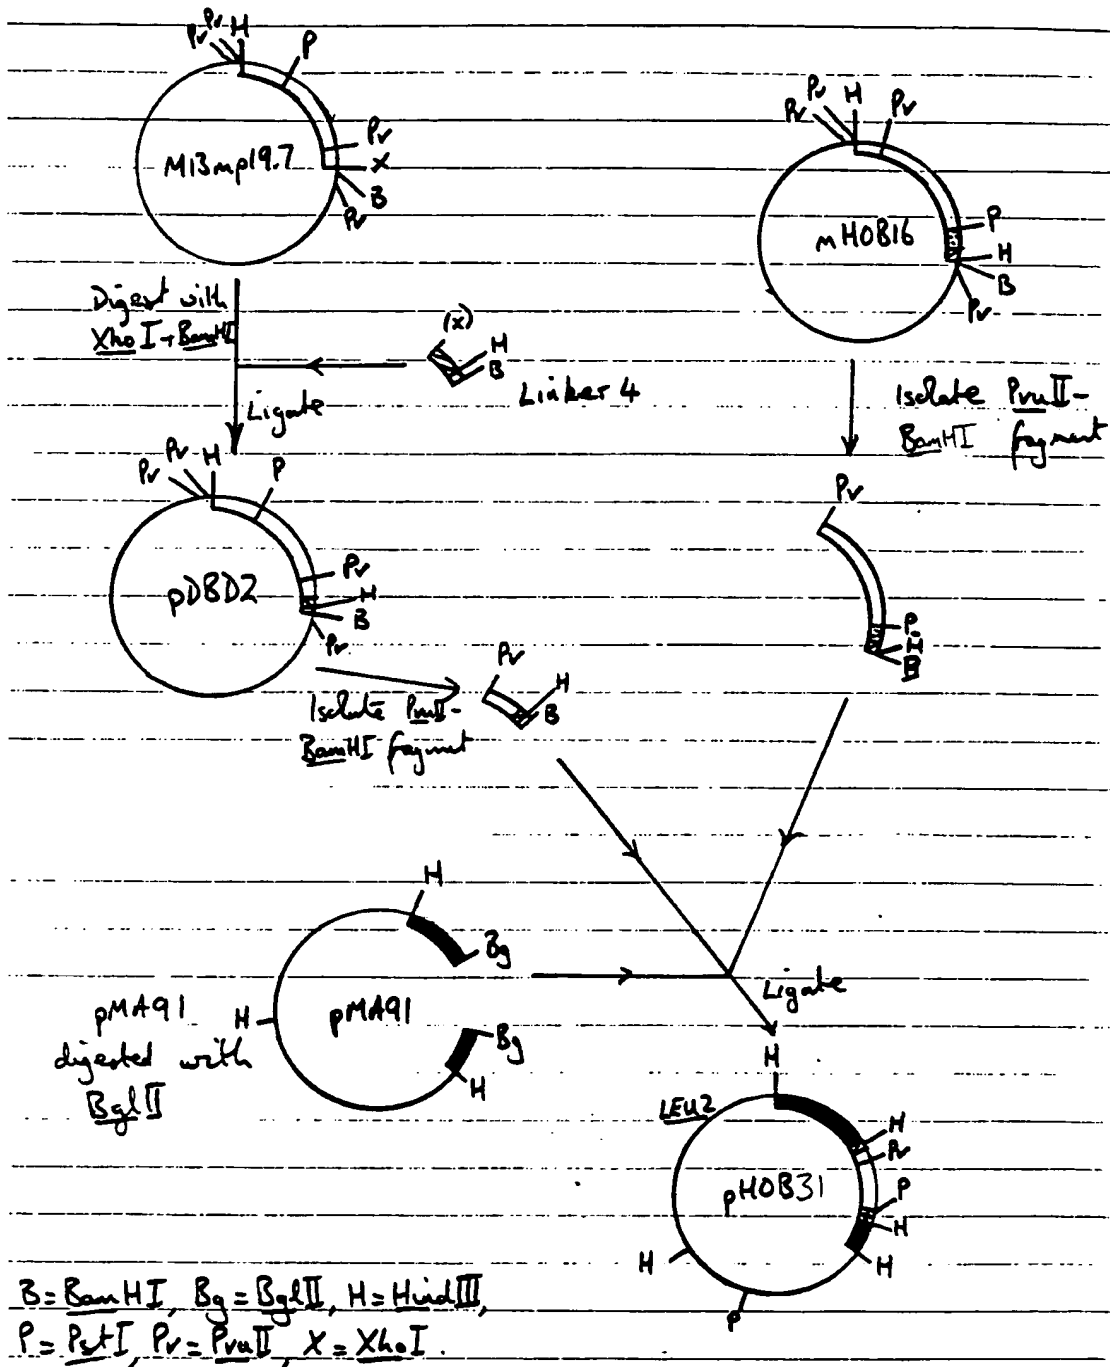 Pr Pr H
P
Pr
X
B
Pr
M13mp19.7
Pr Pr H Pr
P
H
B
Pr
mHOB16
Digest with
XhoI + BamHI
(x)
H
B
Linker 4
Ligate
Isolate PvuII-
BamHI fragment
Pr Pr H P
Pr
H
B
Pr
pDBD2
Pr
P
H
B
Isolate PvuII-
BamHI fragment
Pr
H
B
H
Bg
Bg
H
H
pMA91
pMA91
digested with
BglII
Ligate
H
LEU2
H
Pr
P
H
H
P
H
pHOB31
B = BamHI, Bg = BglII, H = HindIII,
P = PstI, Pr = PvuII, X = XhoI.